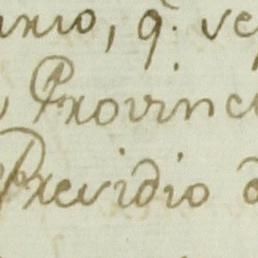 ario, q.^ ve
Provinc
Presidio d